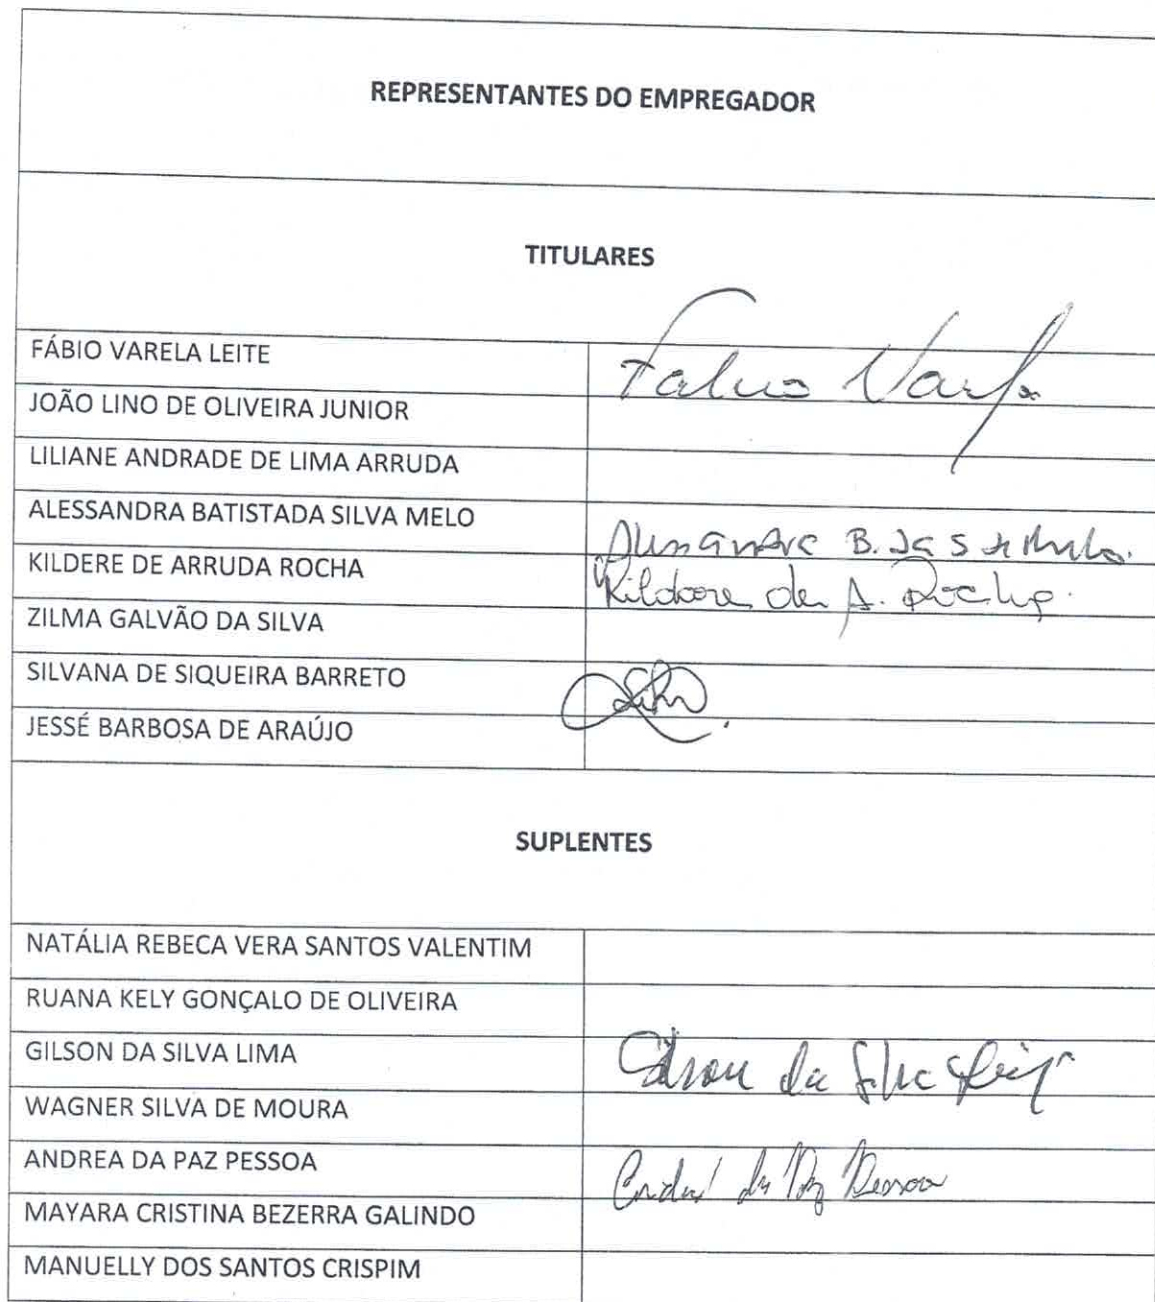 REPRESENTANTES DO EMPREGADOR
TITULARES
FÁBIO VARELA LEITE Fabio Varela
JOÃO LINO DE OLIVEIRA JUNIOR
LILIANE ANDRADE DE LIMA ARRUDA
ALESSANDRA BATISTADA SILVA MELO B. da S
KILDERE DE ARRUDA ROCHA Kildere de A. Rocha.
ZILMA GALVÃO DA SILVA
SILVANA DE SIQUEIRA BARRETO
JESSÉ BARBOSA DE ARAÚJO
SUPLENTES
NATÁLIA REBECA VERA SANTOS VALENTIM
RUANA KELY GONÇALO DE OLIVEIRA
GILSON DA SILVA LIMA Gilson da Silva
WAGNER SILVA DE MOURA
ANDREA DA PAZ PESSOA da Paz Pessoa
MAYARA CRISTINA BEZERRA GALINDO
MANUELLY DOS SANTOS CRISPIM